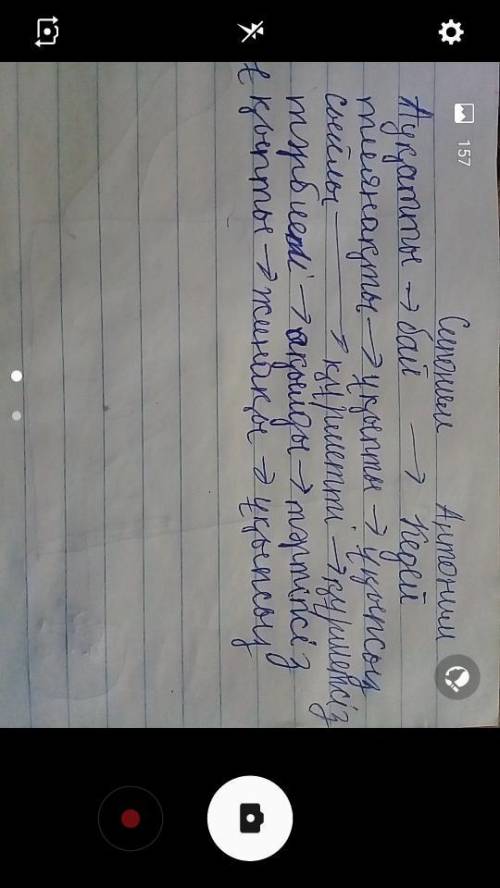 157
Синоним Антоним
Ауқатты → бай → Кедей
тиянақты → ұқыпты → ұқыпсыз
сыйлы → құрметті → құрметсіз
тәрбиелі → ақылды → тәртіпсіз
ұқыпты → жинақы → ұқыпсыз